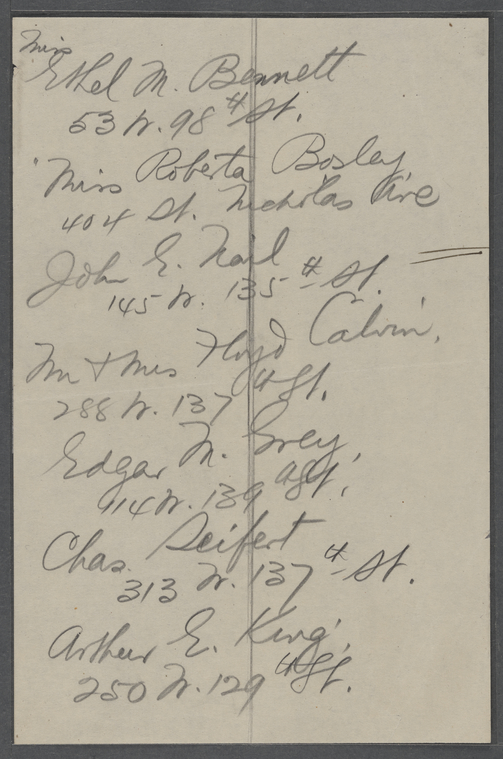 Miss
Ethel M. Bennett
53 W. 98th St.
Miss Roberta Bosley
404 St. Nicholas Ave
John E. Nail
145 W. 135th St.
Mr & Mrs Floyd Calvin.
288 W. 137th St.
Edgar M. Grey,
114 W. 139th St.
Chas. Seifert
313 W. 137th St.
Arthur E. King,
250 W. 129th St.